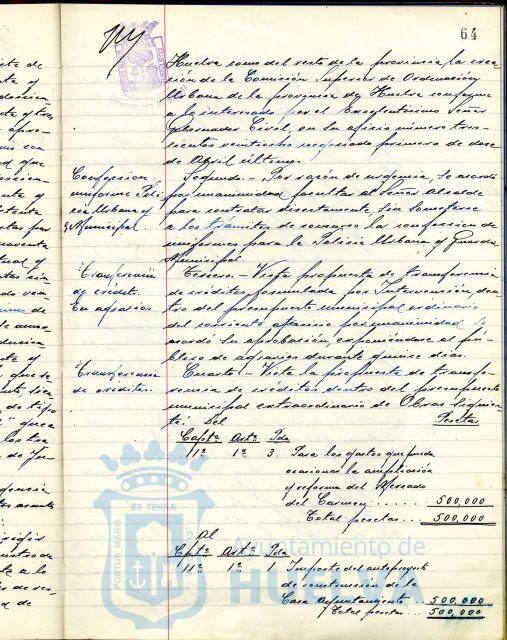 64
Huelva como del resto de la provincia, la crea-
ción de la Comisión Superior de Ordenación
Urbana de la provincia de Huelva conforme
a lo interesado por el Excelentísimo Señor
Gobernador Civil, en su oficio número tres-
cientos veintiocho negociado primero de doce
de Abril último.
Confección
uniforme Poli-
cia Urbana y
G. Municipal.
Segundo.- Por razón de urgencia, se acordó
por unanimidad facultar al Señor Alcalde
para contratar directamente, sin someterse
a los trámites de concurso la confección de
uniformes para la Policía Urbana y Guardia
Municipal.
Transferencia
de crédito.
En agravios.
Tercero.- Vista propuesta de transferencia
de créditos formulada por Intervención, den-
tro del presupuesto municipal ordinario
del corriente ejercicio por unanimidad se
acordó su aprobación, exponiéndose al pú-
blico de agravios durante quince días.
Transferencia
de créditos.
Cuarto.- Vista la propuesta de transfe-
rencia de créditos dentro del presupuesto
municipal extraordinario de Obras siguien-
te: Del
Pesetas
Captº Artº Pda
11º 1º 3 Para los gastos que pueda
ocasionar la ampliación
y reforma del Mercado
del Carmen...... 500,000
Total pesetas... 500,000
Al
Captº Artº Pda
11º 1º 1 Importe del anteproyecto
de construcción de la
Casa Ayuntamiento 500.000
Total pesetas... 500.000
PORTUS MARIS ET TERRAE
Ayuntamiento de
HUELVA